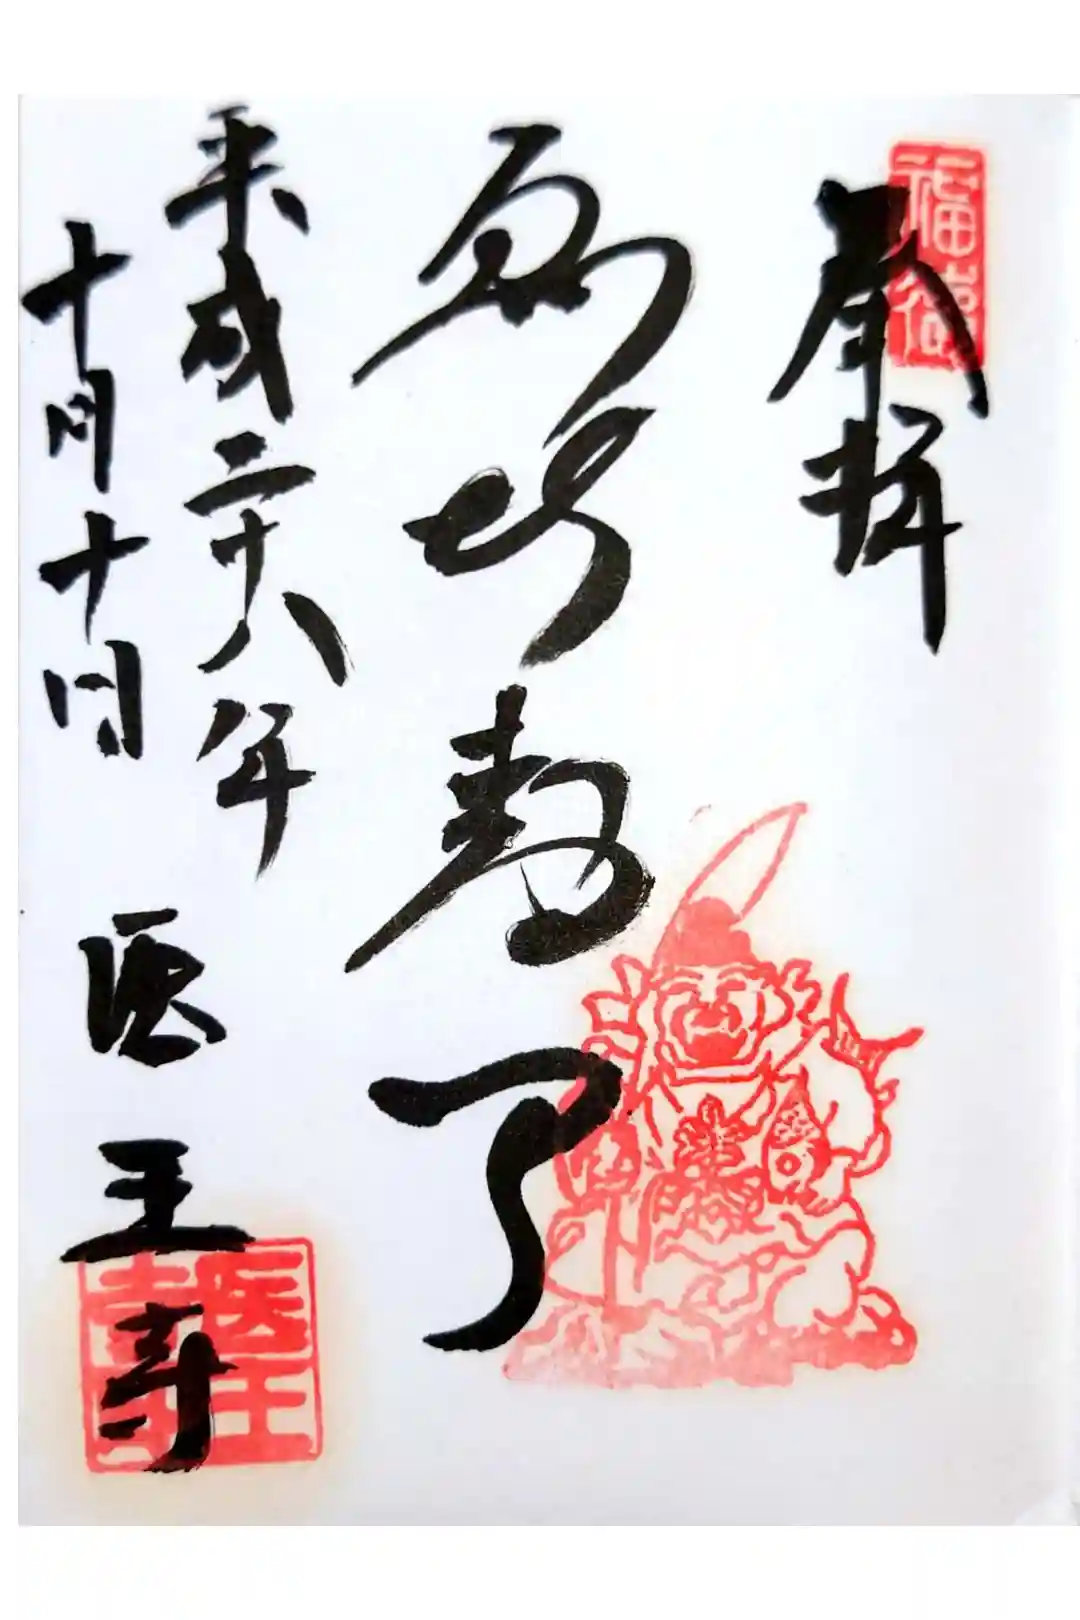 福徳
奉拝
恵比寿
平成二十八年
十月十日
医王寺
医王